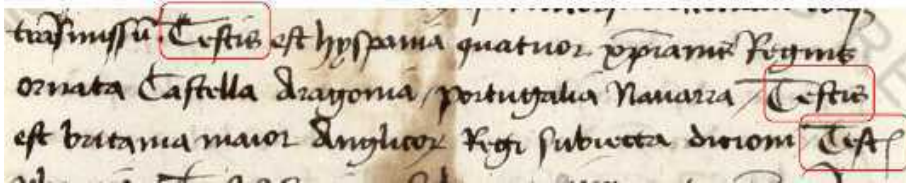 trāsmissū. Testis est hyspania quatuor xp̄ianis Regnis
ornata Castella Aragonia / portugalia Nauarra / Testis
est britania maior Anglicoꝝ Regi subiecta dicioni Test